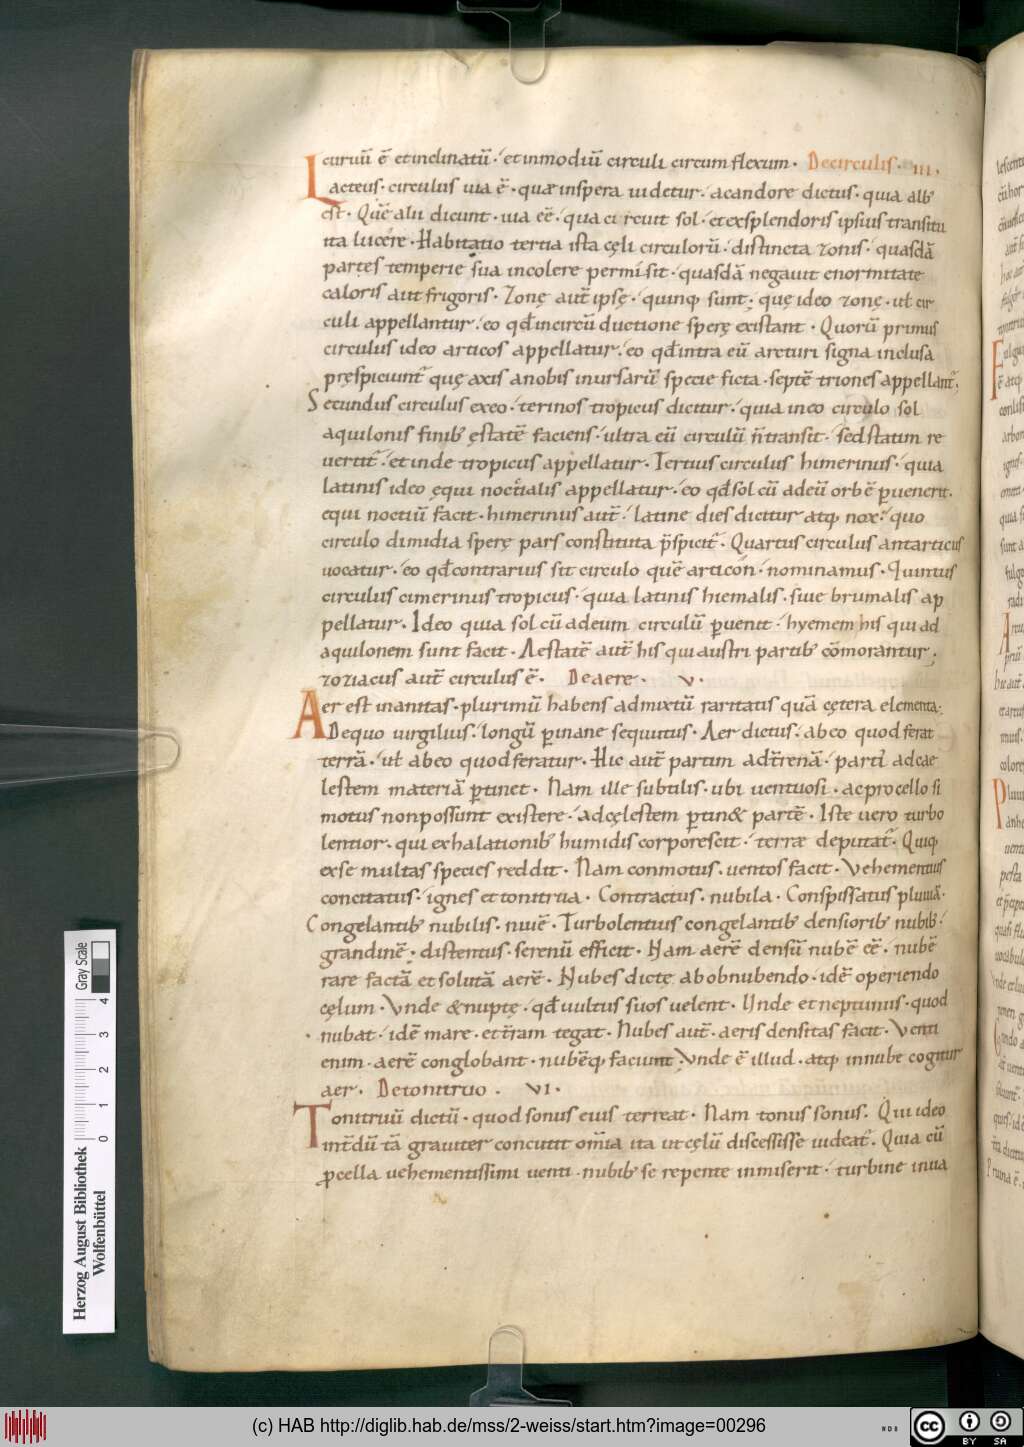 curuū ē et inclinatū· et inmodiū circuli circum flexum· De circulis· III·
Lacteus· circulus uia ē· quæ inspera uidetur· a candore dictus· quia alb
est· Quē alii dicunt· uia eē· qua circuit sol· et exsplendoris ipsius transitu
ita lucere· Habitatio tertia ista cęli circulorū· distincta zonis· quasdā
partes temperie sua incolere permisit· quasdā negauit enormitate
caloris aut frigoris· Zonę aut̄ ipsę· quinq; sunt· quę ideo zonę· ut cir
culi appellantur· eo qđ in circū ductione sperę existant· Quorū primus
circulus ideo articos appellatur· eo qđ intra eū arcturi signa inclusa
pręspiciunt̄ quę axis a nobis inursarū specie ficta· septē triones appellant̄·
Secundus circulus exeo· terinos tropicus dicitur· quia in eo circulo sol
aquilonis finib; ęstatē faciens· ultra eū circulū n̄ transit· sed statim re
uertit̄· et inde tropicus appellatur· Tertius circulus himerinus· quia
latinis ideo ęqui noctialis appellatur· eo qđ sol cū ad eū orbē puenerit·
equi noctiū facit· himerinus aut̄· latine dies dicitur atq; nox· quo
circulo dimidia sperę pars constituta p̄spicit̄· Quartus circulus antarticus
uocatur· eo qđ contrarius sit circulo quē articon· nominamus· Quintus
circulus cimerinus tropicus· quia latinis hiemalis· siue brumalis ap
pellatur· Ideo quia sol cū ad eum circulū puenit· hyemem his qui ad
aquilonem sunt facit· Aestatē aut̄ his qui austri partib; cōmorantur·
zoziacus aut̄ circulus ē· De aere· V·
Aer est inanitas· plurimū habens admixtū raritatis quā cętera elementa·
De quo uirgilius· longū p inane sequutus· Aer dictus· ab eo quod ferat
terrā· ut ab eo quod feratur· Hic aut̄ partim ad t̄renā· parti ad cae
lestem materiā p tinet· Nam ille subtilis· ubi uentuosi· ac procellosi
motus non possunt existere· ad cęlestem p tin& partē· Iste uero turbo
lentior· qui exhalationib; humidis corporescit· terræ deputat̄· Quiq;
ex se multas species reddit· Nam conmotus· uentos facit· Vehementius
concitatus· ignes et tonitrua· Contractus· nubila· Conspissatus pluuiā·
Congelantib; nubilis· niuē· Turbolentius congelantib; densiorib; nubib;·
grandinē· distentus· serenū efficit· Nam aerē densū nubē eē· nubē
rare factā et solutā aerē· Nubes dictę ab obnubendo· idē operiendo
cęlum· Vnde &nuptę· qđ uultus suos uelent· Unde et neptunus· quod
nubat· idē mare· et t̄ram tegat· Nubes aut̄· aeris densitas facit· Venti
enim· aerē conglobant· nubēq; faciunt Vnde ē illud· atq; in nube cogitur
aer· De tonitruo· VI·
Tonitruū dictū· quod sonus eius terreat· Nam tonus sonus· Qui ideo
int̄dū tā grauiter concutit om̄ia ita ut cęlū discessisse uideat̄· Quia cū
pcella uehementissimi uenti· nubib; se repente inmiserit· turbine inuia
Herzog August Bibliothek
Wolfenbüttel
0 1 2 3 4
Gray Scale
(c) HAB http://diglib.hab.de/mss/2-weiss/start.htm?image=00296
cc BY SA